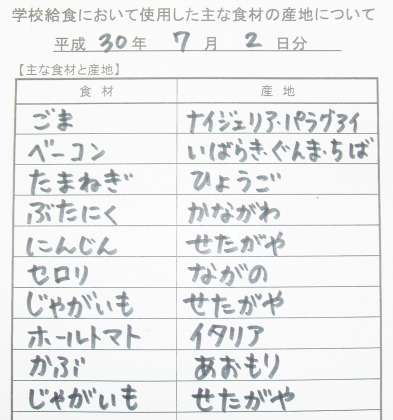 学校給食において使用した主な食材の産地について
平成 30 年 7 月 2 日分
【主な食材と産地】
食材 産地
ごま ナイジェリア・パラグアイ
ベーコン いばらき・ぐんま・ちば
たまねぎ ひょうご
ぶたにく かながわ
にんじん せたがや
セロリ ながの
じゃがいも せたがや
ホールトマト イタリア
かぶ あおもり
じゃがいも せたがや